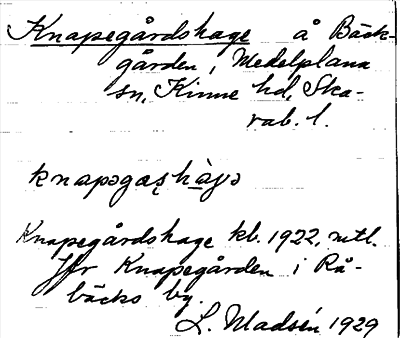 Knapegårdshage å Bäck-
gården, Medelplana
sn, Kinne hd, Ska-
rab. l.
knapəgaʂhàgə
Knapegårdshage kb. 1922, utl.
Jfr Knapegården i Rå-
bäcks by.
L. Madsén 1929